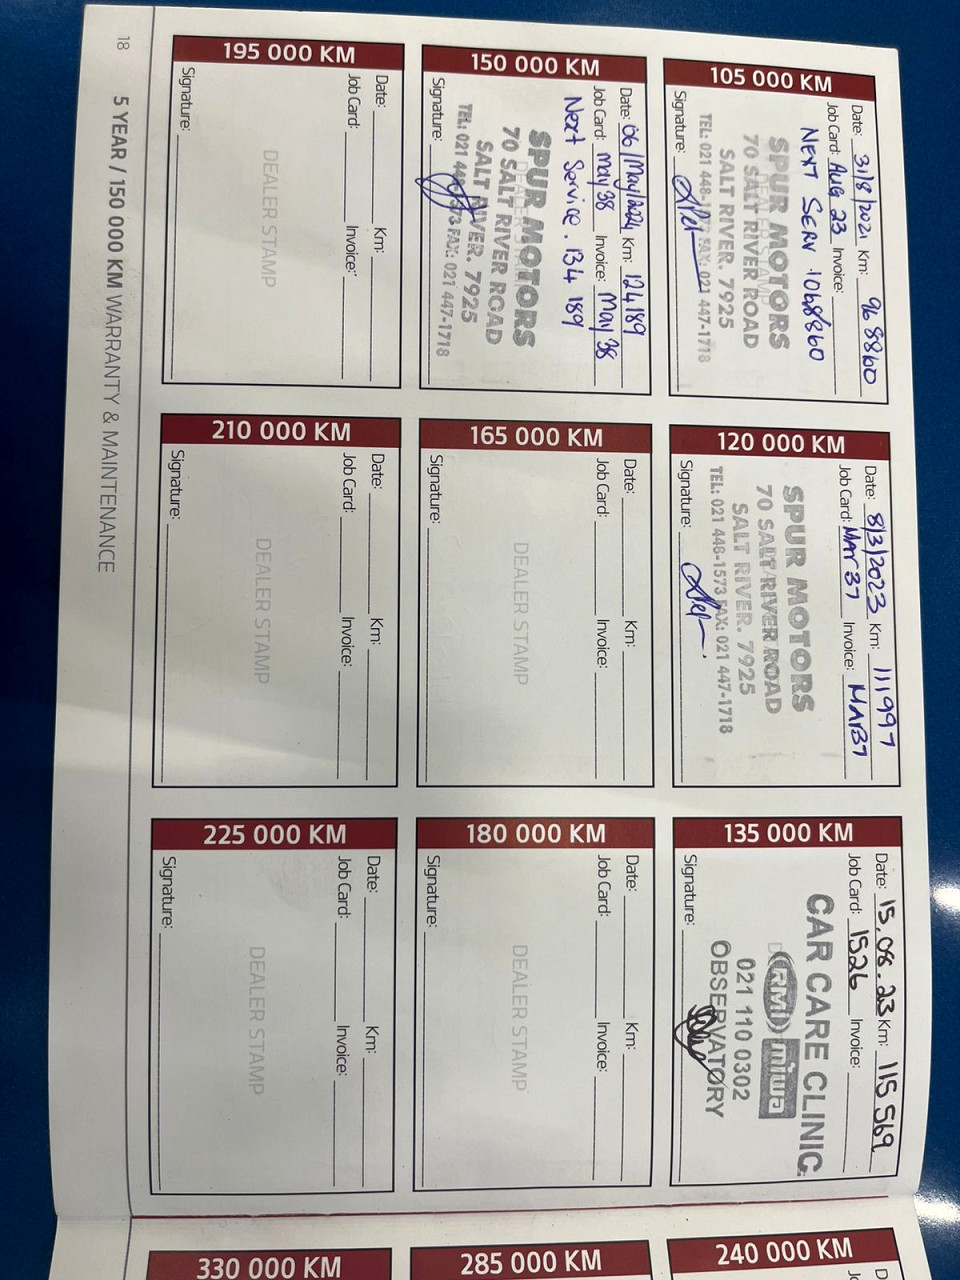 105 000 KM
Date: 31/8/2021 Km: 96 8860
Job Card: AUG 23 Invoice:
NEXT SERV 1068860
DEALER STAMP
SPUR MOTORS
70 SALT RIVER ROAD
SALT RIVER. 7925
TEL: 021 448-1573 FAX: 021 447-1718
Signature:
120 000 KM
Date: 8/3/2023 Km: 111997
Job Card: MAR37 Invoice: MAR37
SPUR MOTORS
70 SALT RIVER ROAD
SALT RIVER. 7925
TEL: 021 448-1573 FAX: 021 447-1718
Signature:
135 000 KM
Date: 15.08.23 Km: 115569
Job Card: 1526 Invoice:
CAR CARE CLINIC
RMI miwa
021 110 0302
OBSERVATORY
Signature:
150 000 KM
Date: 06/May/2024 Km: 124189
Job Card: May 38 Invoice: May 38
Next Service. 134 189
DEALER STAMP
SPUR MOTORS
70 SALT RIVER ROAD
SALT RIVER. 7925
TEL: 021 448-1573 FAX: 021 447-1718
Signature:
165 000 KM
Date: Km:
Job Card: Invoice:
DEALER STAMP
Signature:
180 000 KM
Date: Km:
Job Card: Invoice:
DEALER STAMP
Signature:
195 000 KM
Date: Km:
Job Card: Invoice:
DEALER STAMP
Signature:
210 000 KM
Date: Km:
Job Card: Invoice:
DEALER STAMP
Signature:
225 000 KM
Date: Km:
Job Card: Invoice:
DEALER STAMP
Signature:
18 5 YEAR / 150 000 KM WARRANTY & MAINTENANCE
240 000 KM
285 000 KM
330 000 KM